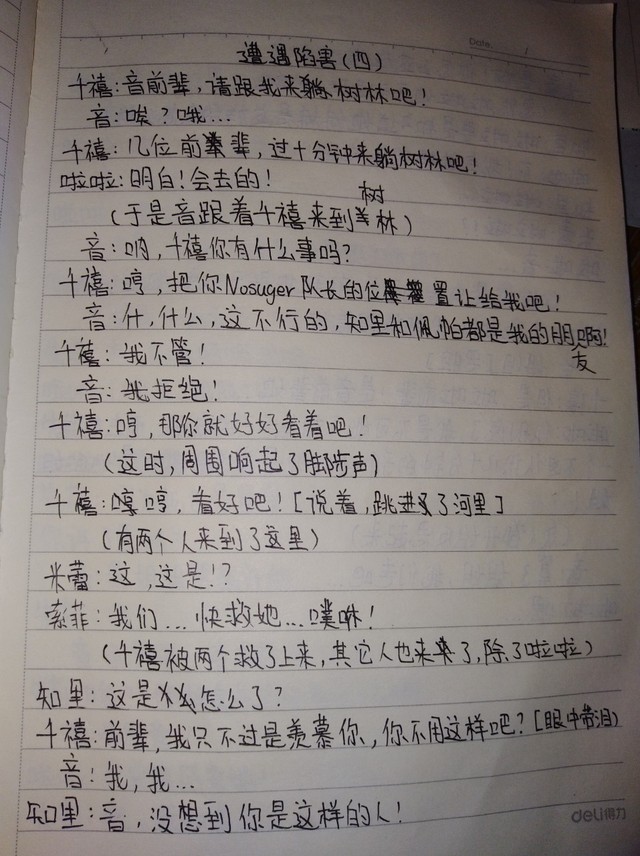 Date    /
遭遇陷害(四)
千禧:音前辈,请跟我来躺树林吧!
音:唉?哦...
千禧:几位前辈,过十分钟来躺树林吧!
啦啦:明白!会去的!
(于是音跟着千禧来到树林)
音:呐,千禧你有什么事吗?
千禧:哼,把你Nosuger队长的位置让给我吧!
音:什,什么,这不行的,知里和佩帕都是我的朋友啊!
千禧:我不管!
音:我拒绝!
千禧:哼,那你就好好看着吧!
(这时,周围响起了脚步声)
千禧:哼哼,看好吧![说着,跳进了河里]
(有两个人来到了这里)
米蕾:这,这是!?
索菲:我们...快救她...噗咻!
(千禧被两个救了上来,其它人也来了,除了啦啦)
知里:这是怎么了?
千禧:前辈,我只不过是羡慕你,你不用这样吧?[眼中带泪)
音:我,我...
知里:音,没想到你是这样的人!
deli得力